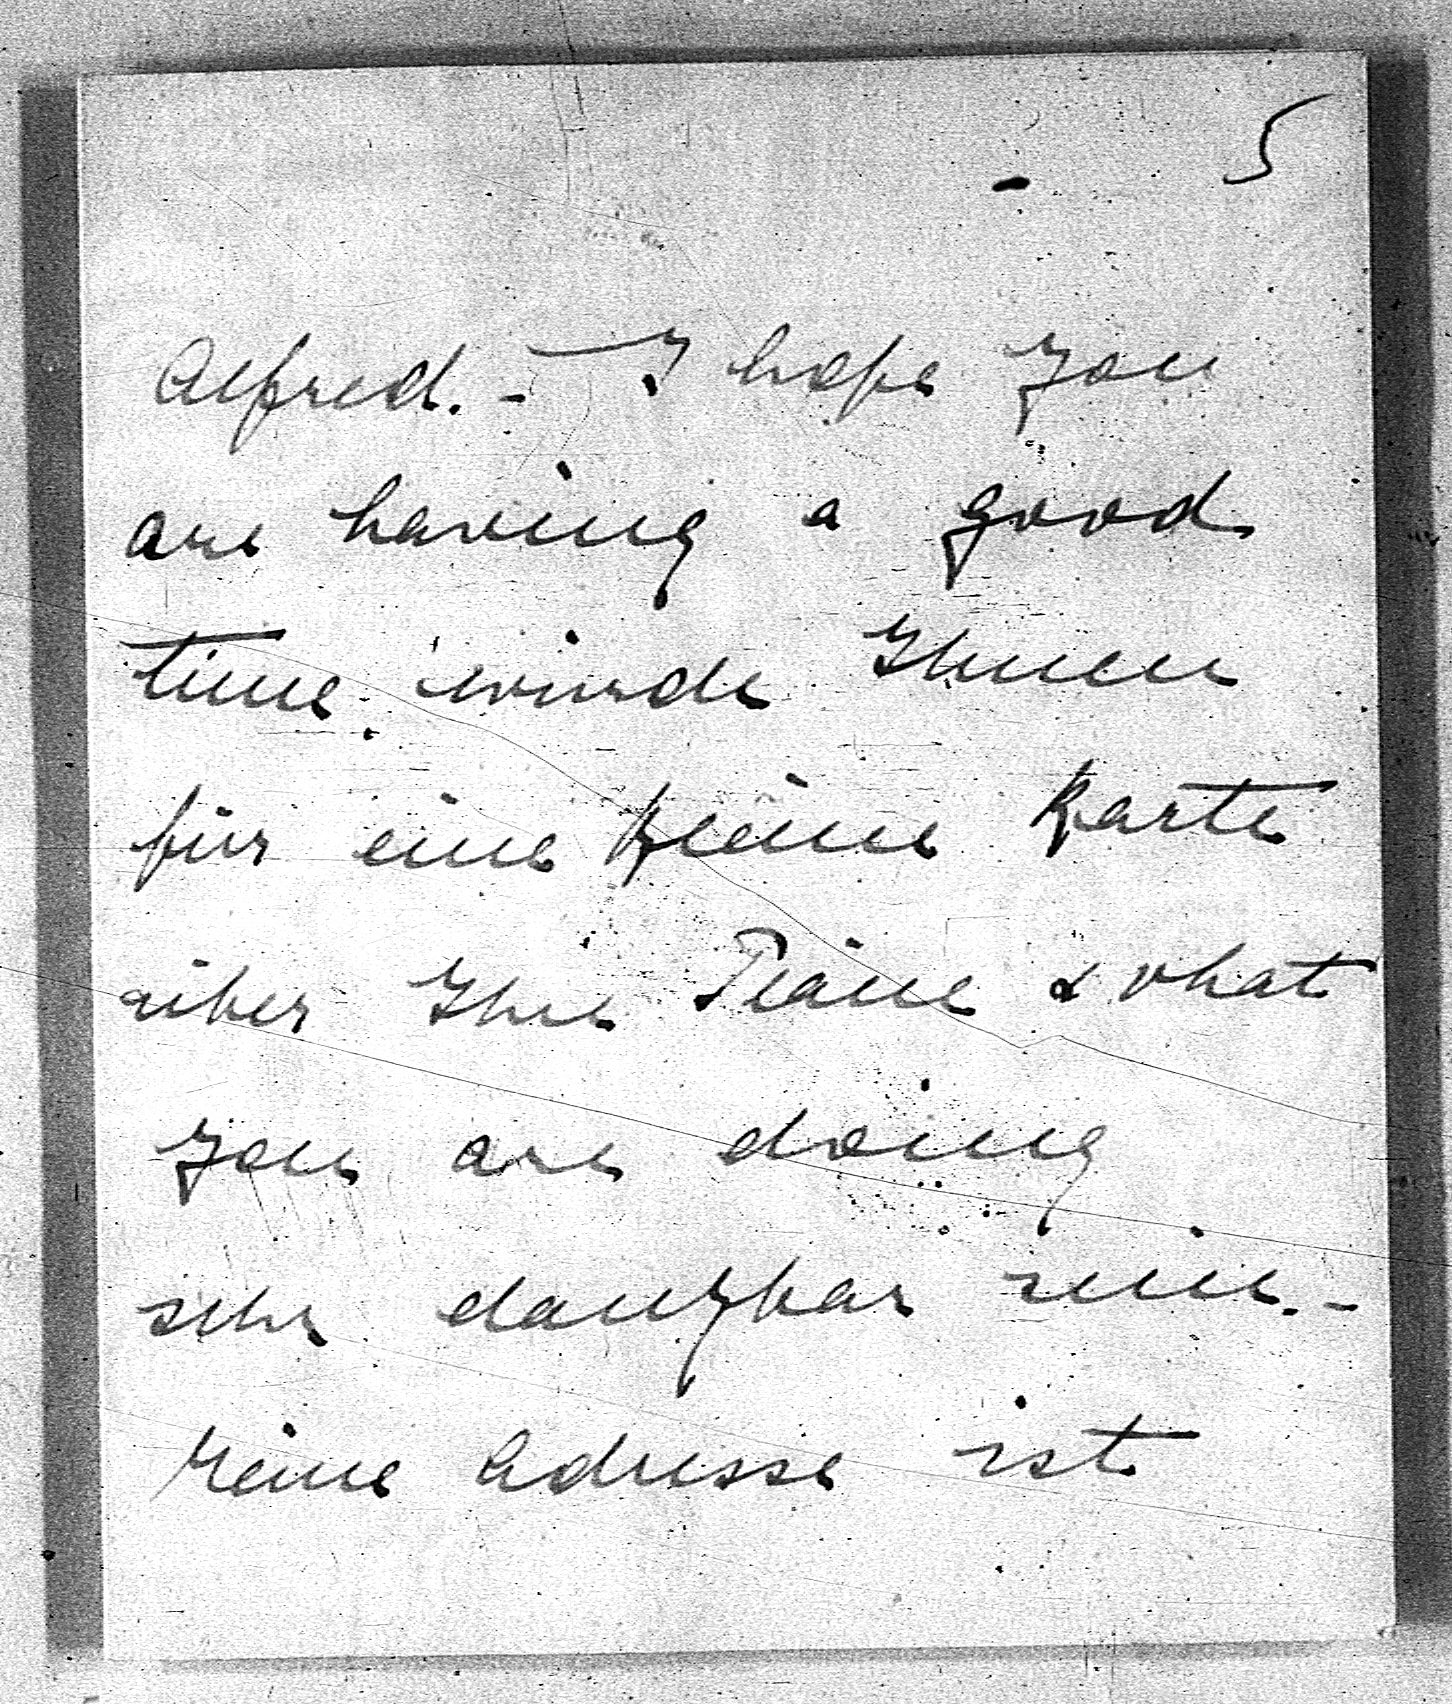 5
Alfred. - I hope you
are having a good
time. würde Ihnen
für eine kleine Karte
über Ihre Pläne & what
you are doing
sehr dankbar sein. -
Meine Adresse ist